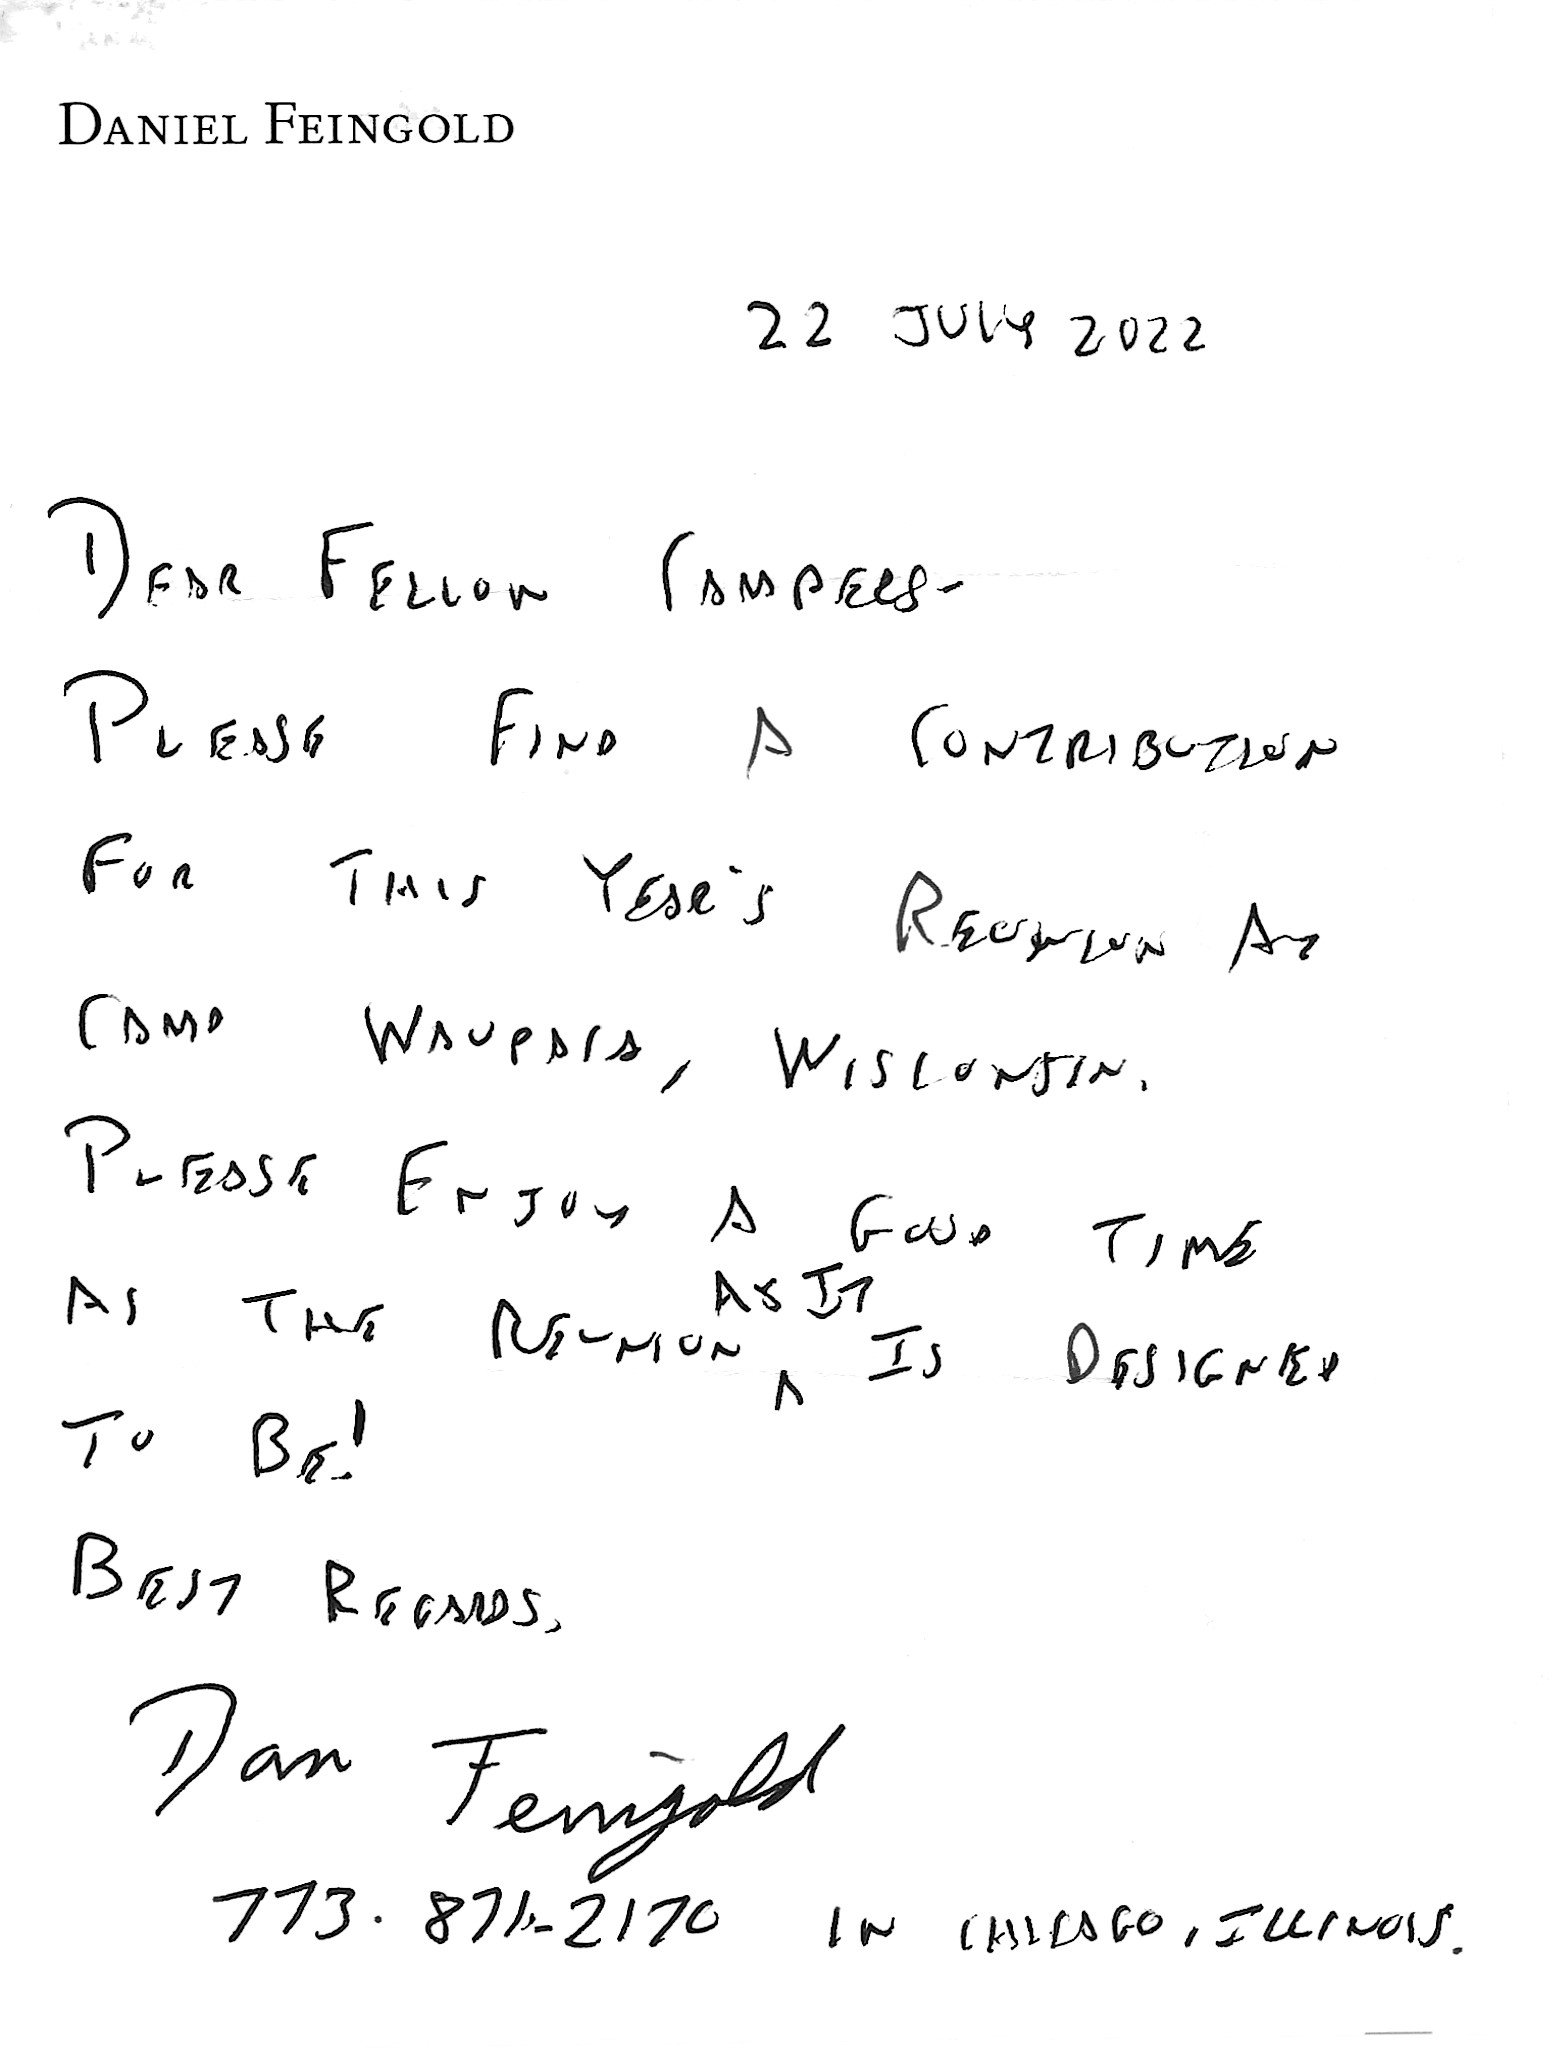 DANIEL FEINGOLD
22 JULY 2022
DEAR FELLOW CAMPERS-
PLEASE FIND A CONTRIBUTION
FOR THIS YEAR'S REUNION AT
CAMP WAUPACA, WISCONSIN.
PLEASE ENJOY A GOOD TIME
AS THE REUNION ^ AS IT IS DESIGNED
TO BE!
BEST REGARDS,
Dan Feingold
773.871-2170 IN CHICAGO, ILLINOIS.